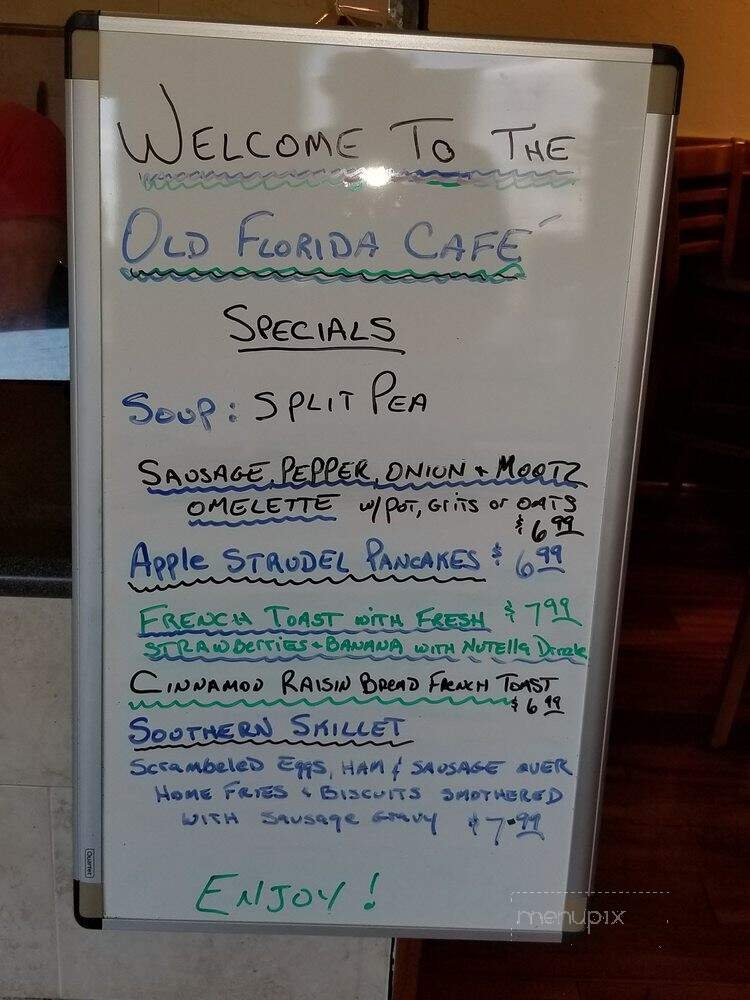 WELCOME TO THE
OLD FLORIDA CAFÉ
SPECIALS
SOUP: SPLIT PEA
SAUSAGE, PEPPER, ONION + MOOTZ
OMELETTE w/POT, GRITS or OATS
$6.99
Apple STRUDEL PANCAKES $6.99
FRENCH TOAST WITH FRESH $7.99
STRAWBERRIES + BANANA WITH NUTELLA Drizzle
CINNAMON RAISIN BREAD FRENCH TOAST
$6.99
SOUTHERN SKILLET
SCRAMBELED Eggs, HAM & SAUSAGE OVER
HOME FRIES + BISCUITS SMOTHERED
WITH SAUSAGE GRAVY $7.99
ENJOY!
Quartet
menupix